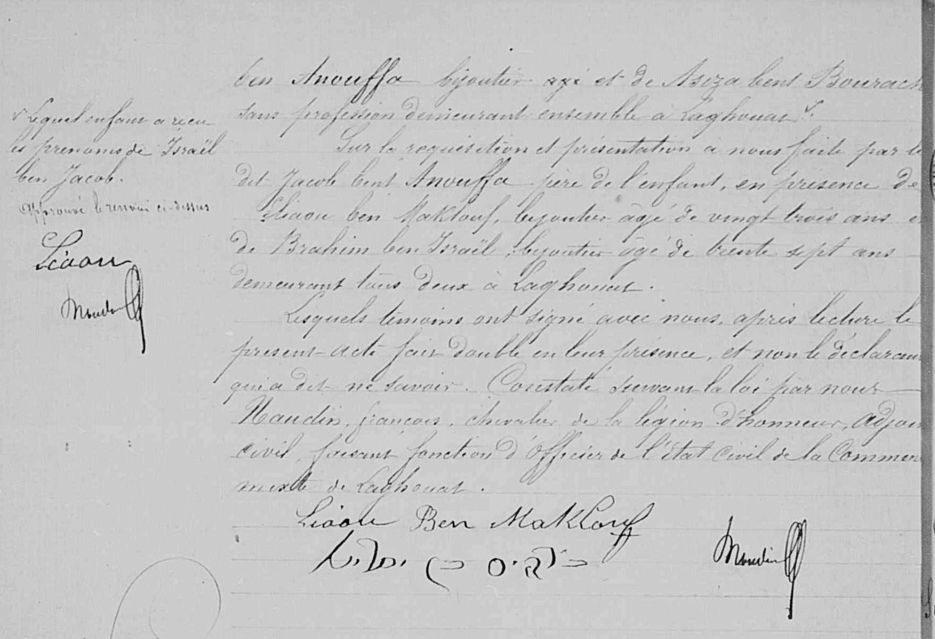 ben Anouffa bijoutier agé et de Asiza bent Bourach
sans profession demeurant ensemble à Laghouat
Sur la requisition et présentation a nous faite par le
dit Jacob bent Anouffa père de l'enfant, en presence de
Liaou ben Maklouf, bijoutier âgé de vingt trois ans e
de Brahim ben Israël, bijoutier agé de trente sept ans
demeurant tous deux à Laghouat.
Lesquels témoins ont signé avec nous, après lecture le
present acte fait double en leur présence, et non le déclarant
qui a dit ne savoir. Constaté suivant la loi par nous
Naudin, françois, chevalier de la légion d'honneur, adjoin
civil, faisant fonction d'officier de l'état civil de la Commun
mixte de Laghouat.
Liaou Ben Maklouf
Lequel enfant a recu
les prenoms de Israël
ben Jacob.
Approuvé le renvoi ci-dessus
Liaou